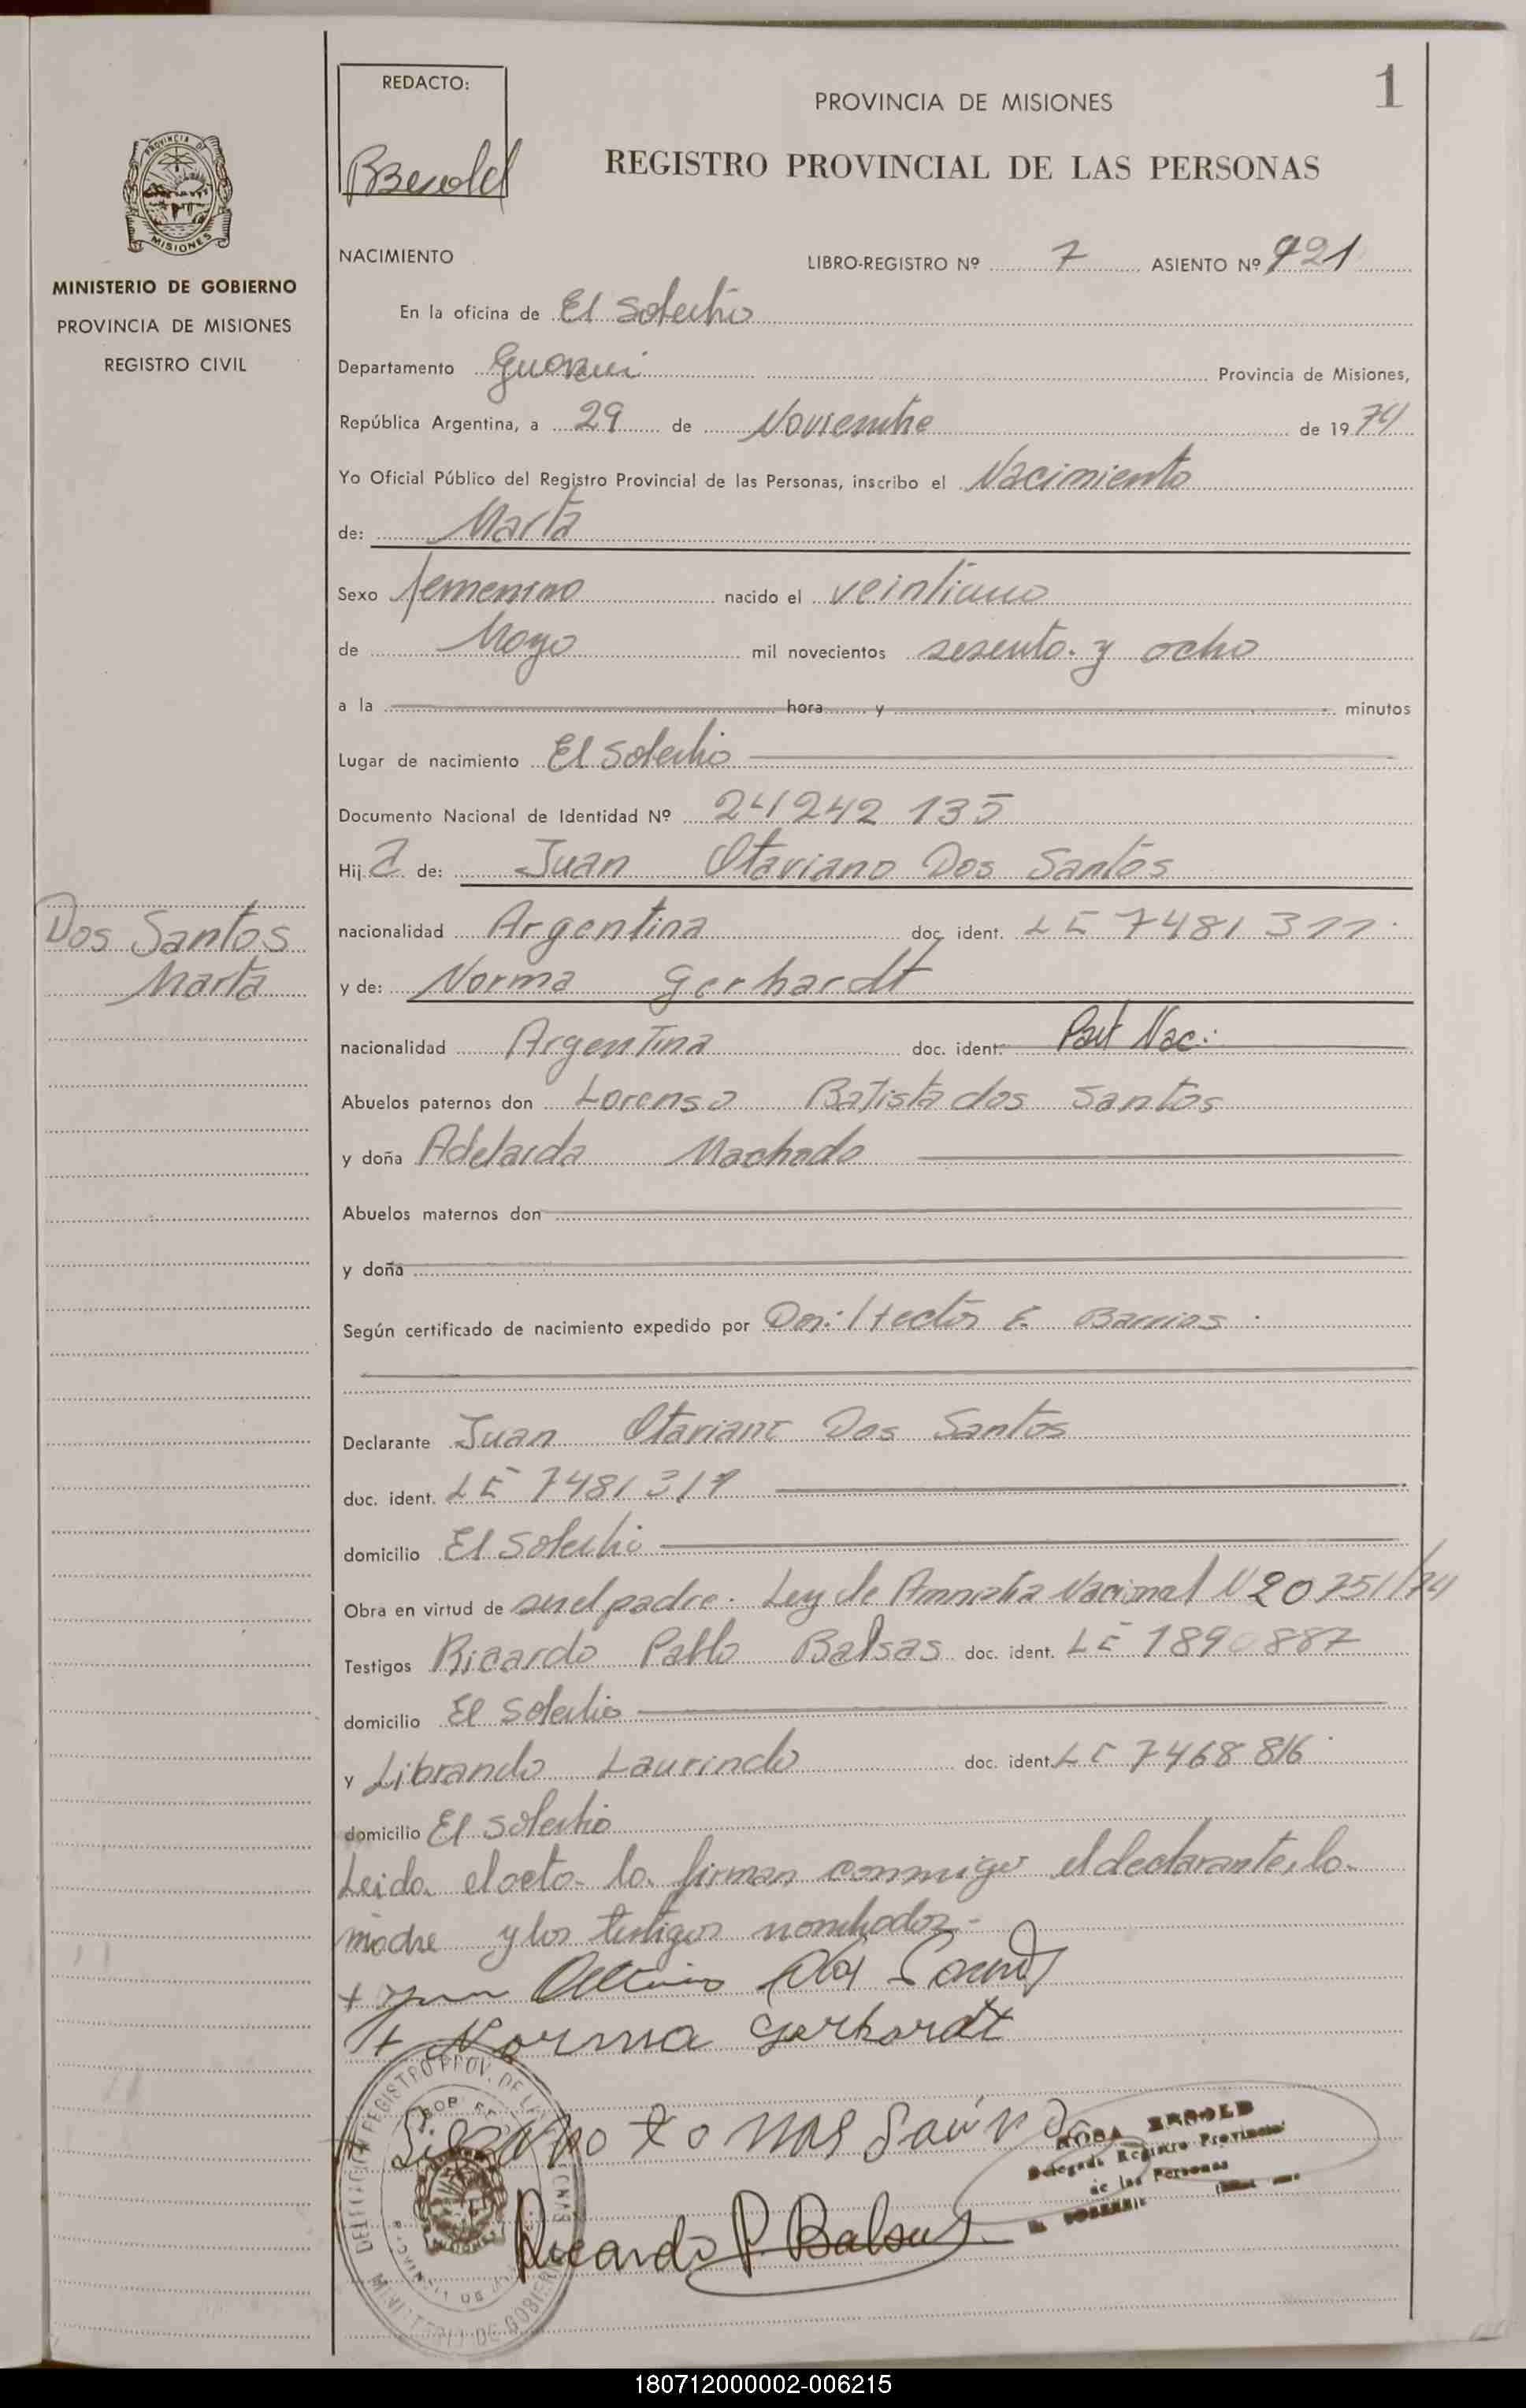 1
REDACTO:
PROVINCIA DE MISIONES
REGISTRO PROVINCIAL DE LAS PERSONAS
PROVINCIA DE
MISIONES
MINISTERIO DE GOBIERNO
PROVINCIA DE MISIONES
REGISTRO CIVIL
NACIMIENTO LIBRO-REGISTRO Nº 7 ASIENTO Nº 921
En la oficina de El Soberbio
Departamento Guarani Provincia de Misiones,
República Argentina, a 29 de Noviembre de 1974
Yo Oficial Público del Registro Provincial de las Personas, inscribo el Nacimiento
de: Marta
Sexo femenino nacido el veintiuno
de Mayo mil novecientos sesenta y ocho
a la hora y minutos
Lugar de nacimiento El Soberbio
Documento Nacional de Identidad Nº 24242 135
Hija de: Juan Otaviano Dos Santos
Dos Santos
Marta
nacionalidad Argentina doc. ident. LE 7481311
y de: Norma Gerhardt
nacionalidad Argentina doc. ident. Part Nac.
Abuelos paternos don Lorenso Batista dos Santos
y doña Adelaida Machado
Abuelos maternos don
y doña
Según certificado de nacimiento expedido por Don: Hector E. Barrios.
Declarante Juan Otaviano Dos Santos
doc. ident. LE 7481311
domicilio El Soberbio
Obra en virtud de ser el padre. Ley de Amnistia Nacional N 20751/74
Testigos Ricardo Pablo Balsas doc. ident. LE 1890887
domicilio El Soberbio
y Librando Laurindo doc. ident. LE 7468816
domicilio El Soberbio
Leida el acta la firman conmigo el declarante, la
madre y los testigos nombrados.-
+ Juan Dos Santos
+ Norma Gerhardt
Ricardo P. Balsas
Delegada Registro Provincial
de las Personas
180712000002-006215